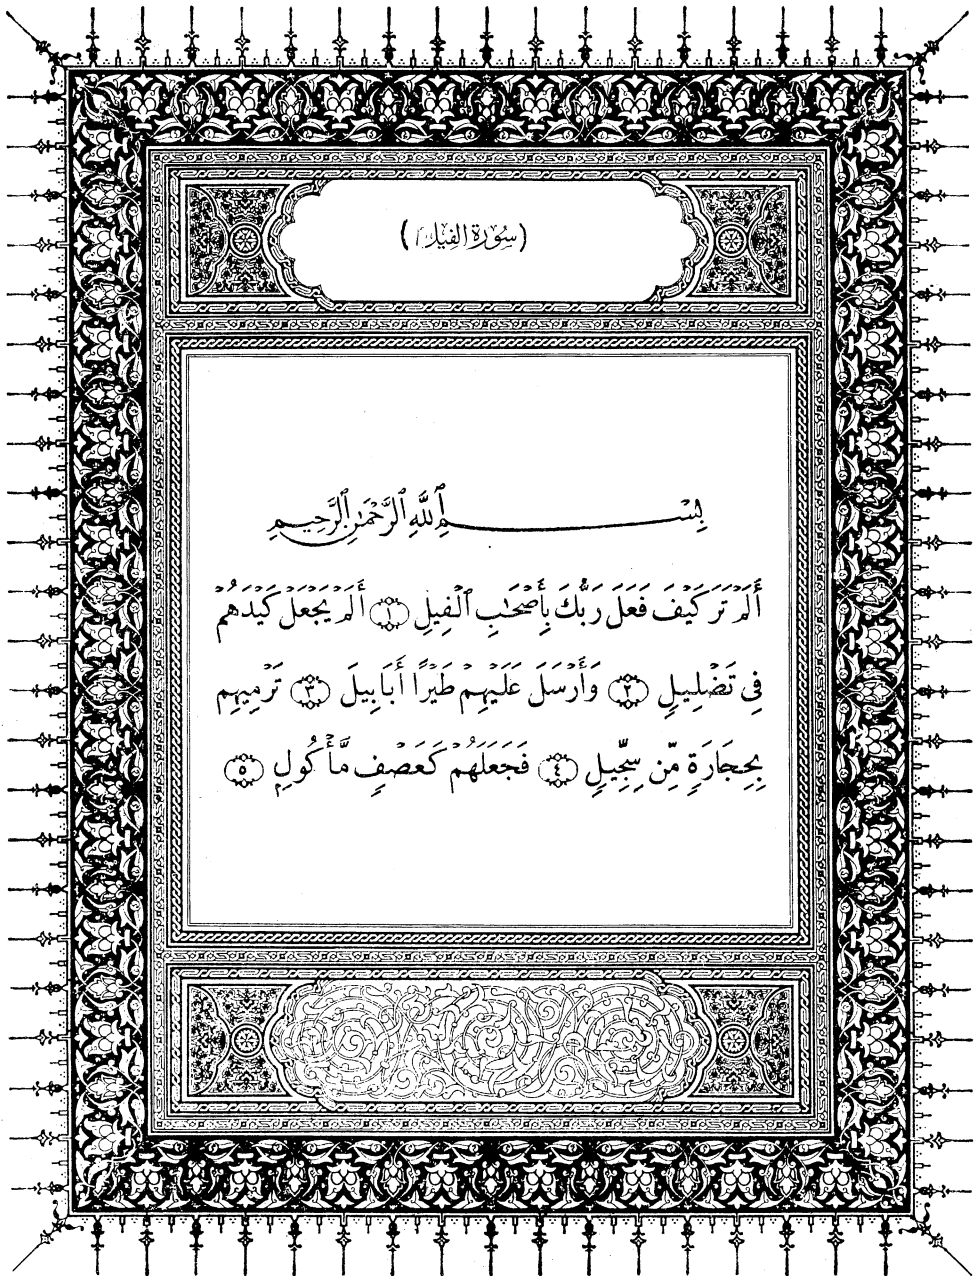 (سُورَة الفِيل)
بِسْمِ ٱللَّهِ ٱلرَّحْمَٰنِ ٱلرَّحِيمِ
أَلَمْ تَرَ كَيْفَ فَعَلَ رَبُّكَ بِأَصْحَٰبِ ٱلْفِيلِ ١ أَلَمْ يَجْعَلْ كَيْدَهُمْ
فِى تَضْلِيلٍ ٢ وَأَرْسَلَ عَلَيْهِمْ طَيْرًا أَبَابِيلَ ٣ تَرْمِيهِم
بِحِجَارَةٍ مِّن سِجِّيلٍ ٤ فَجَعَلَهُمْ كَعَصْفٍ مَّأْكُولٍ ٥